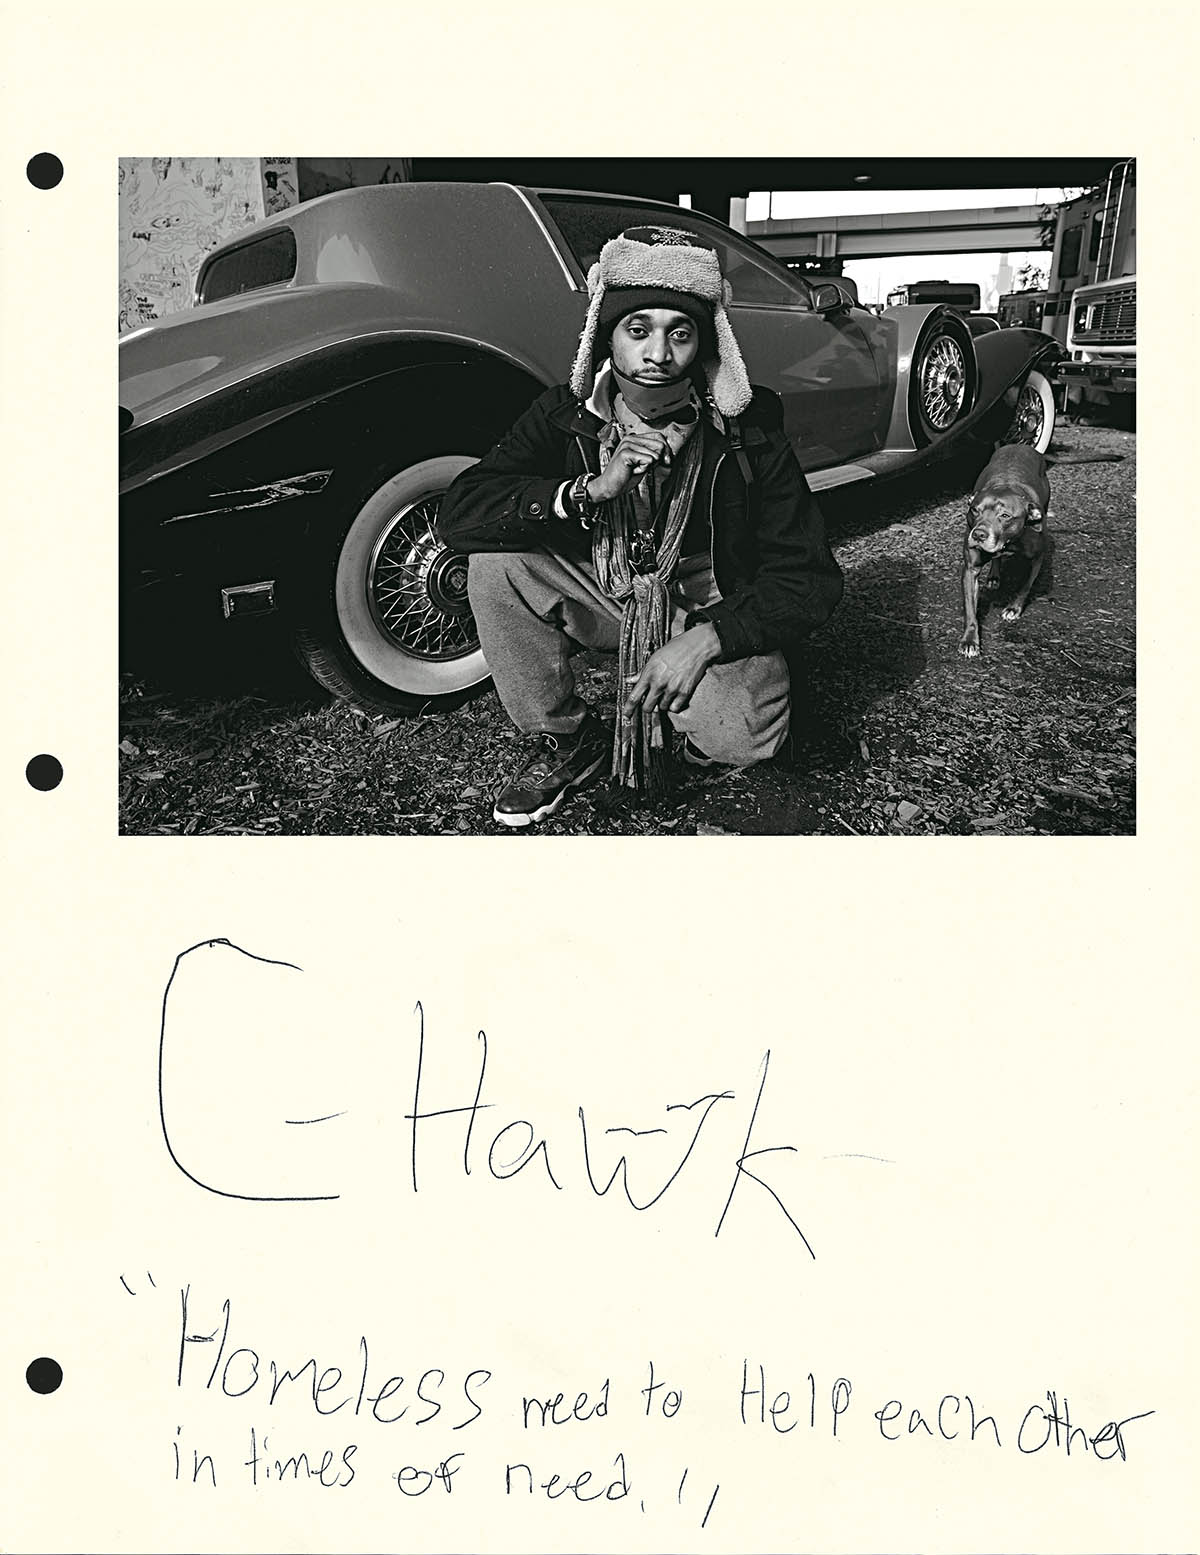 C-Hawk-
"Homeless need to Help each other
in times of need."